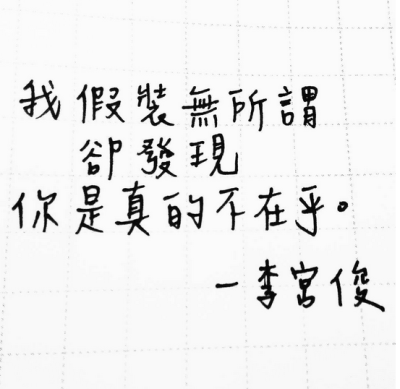 我假裝無所謂
卻發現
你是真的不在乎。
－李宮俊